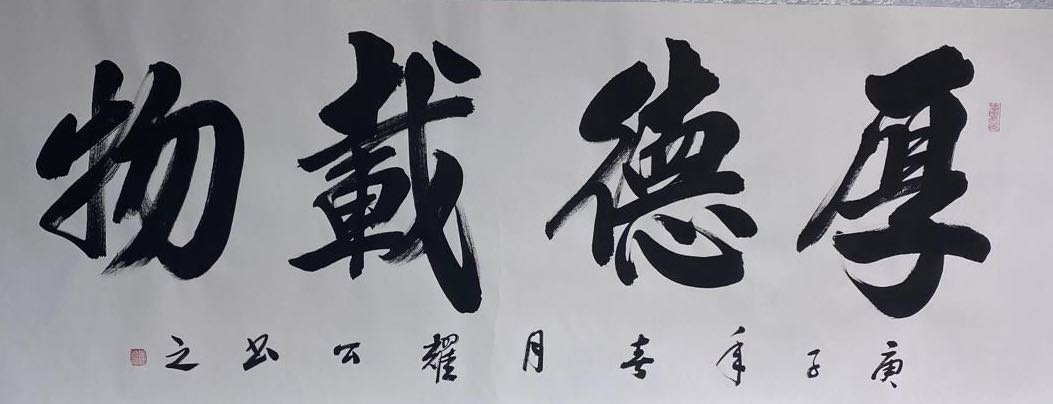 厚德載物
庚子年春月耀公书之